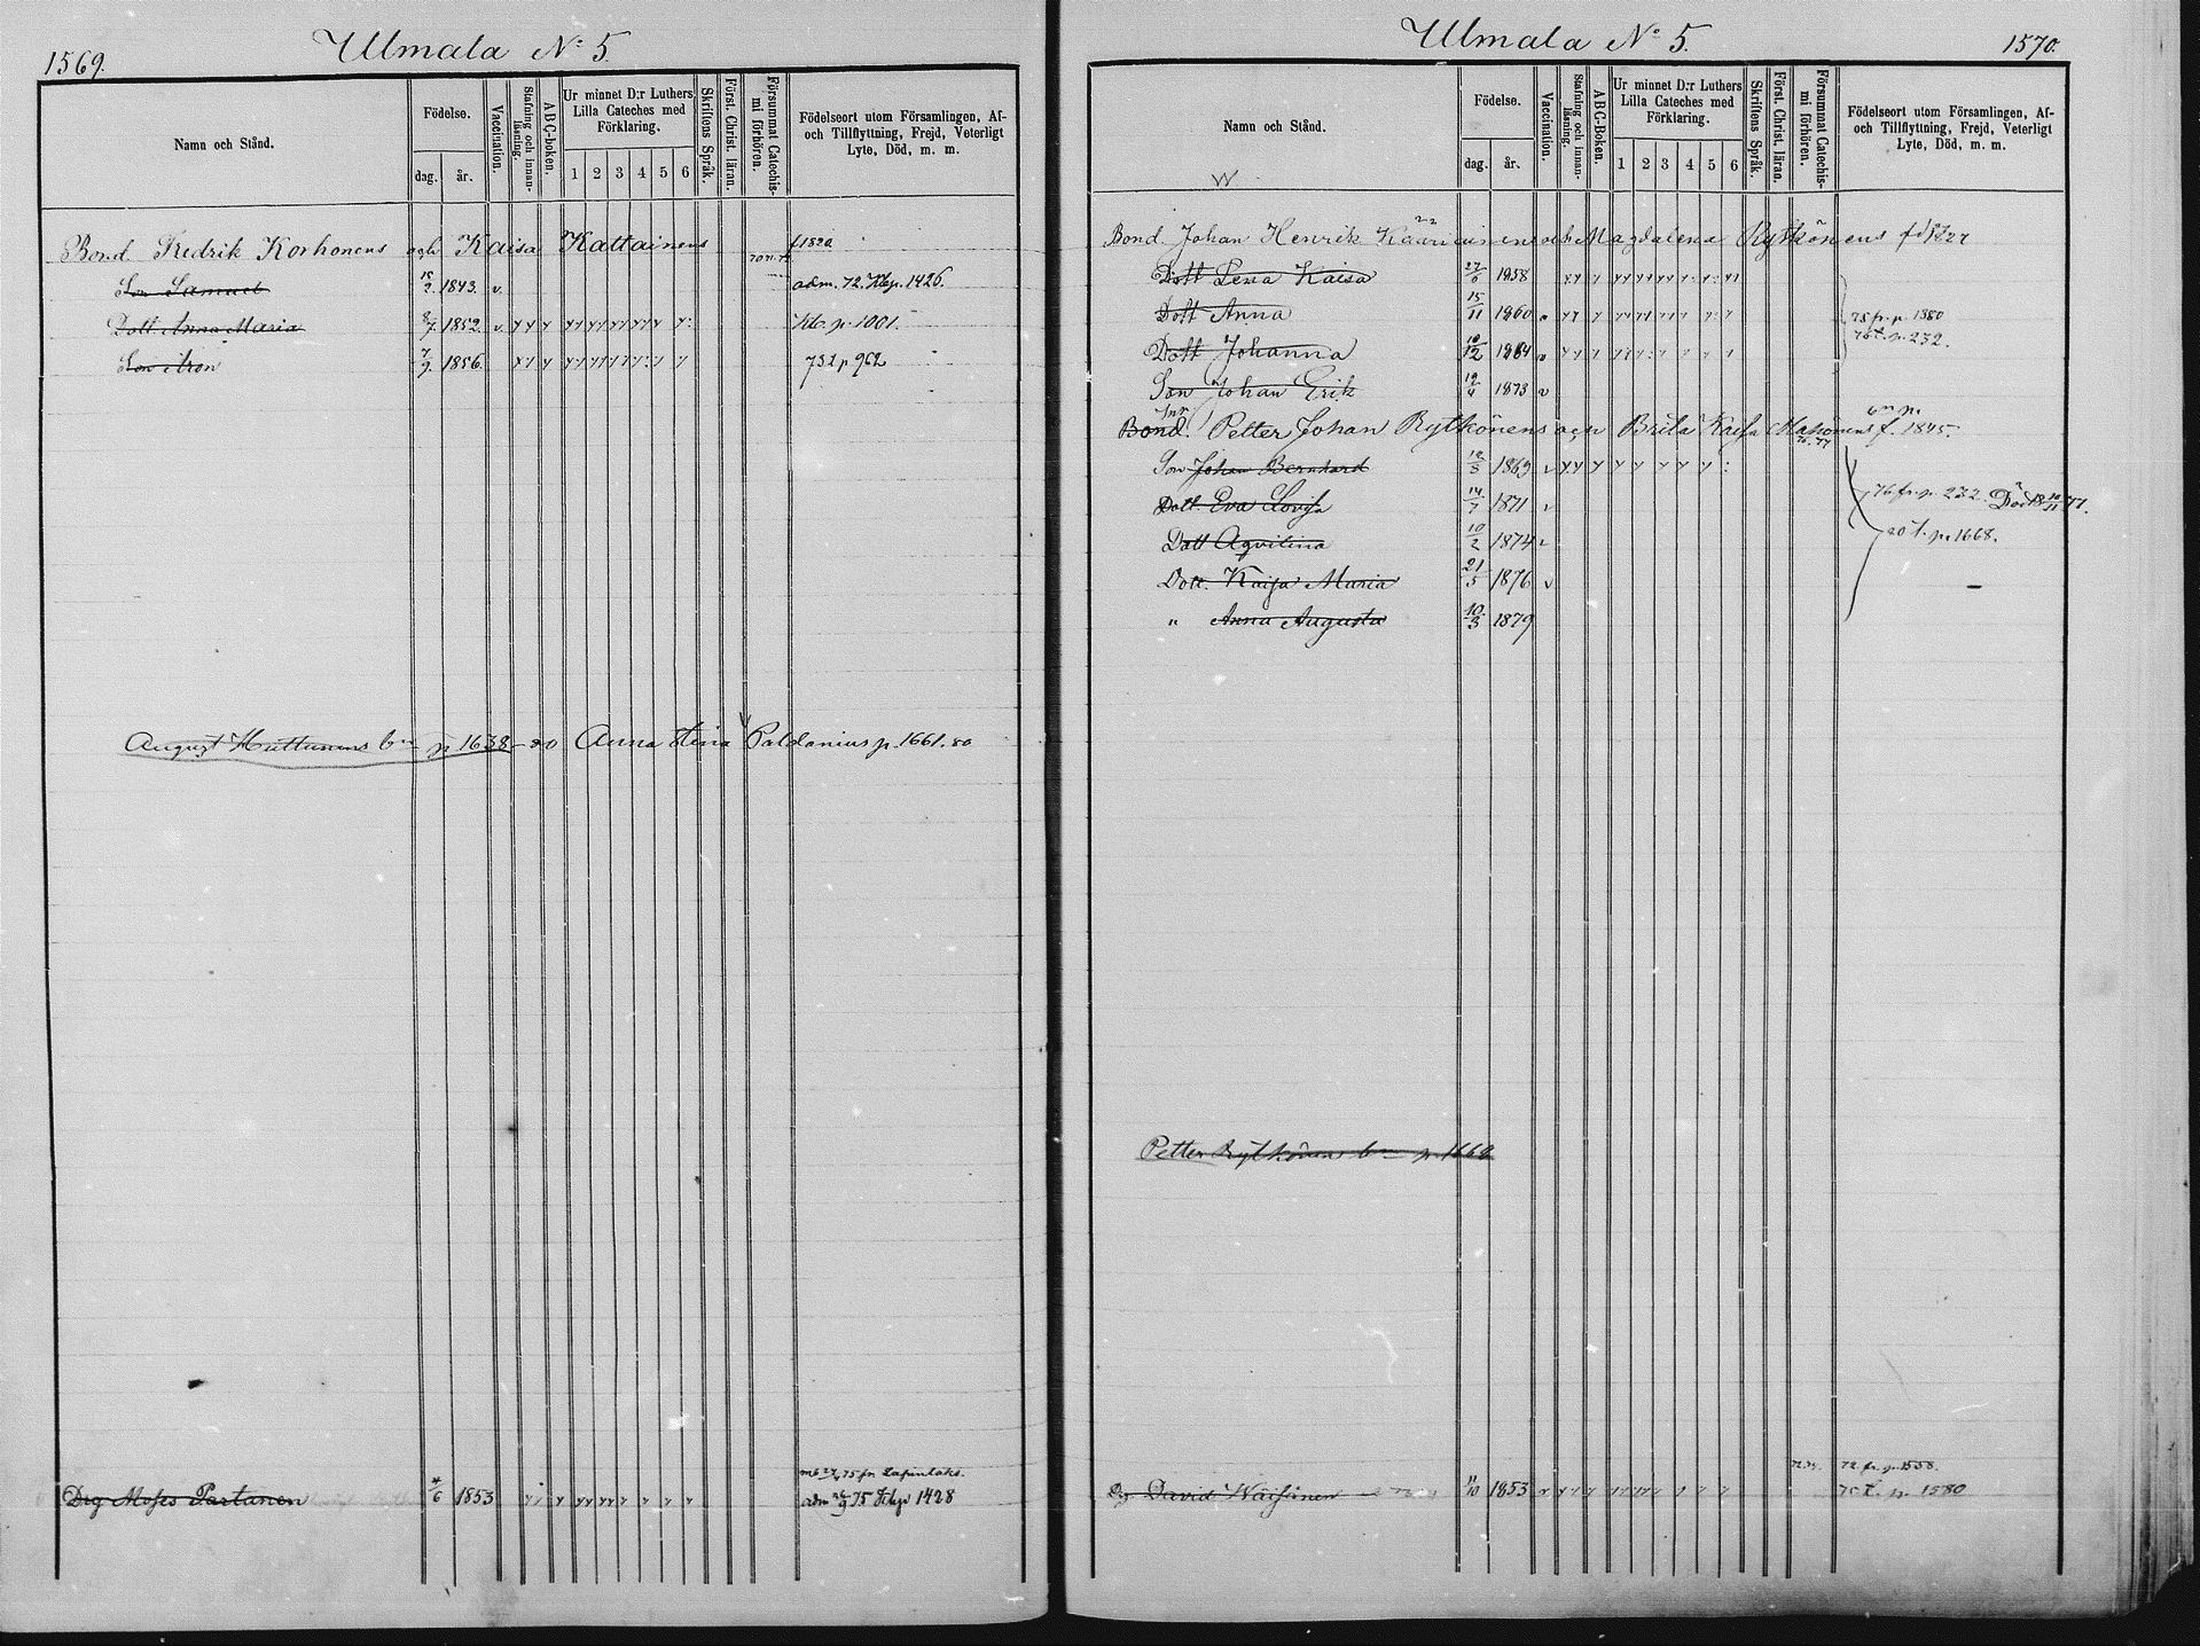 1569.
Ulmala No 5.
Namn och Stånd.
Födelse.
dag. år.
Vaccination.
Stafning och innanläsning.
ABC-boken.
Ur minnet D:r Luthers Lilla Cateches med Förklaring.
1 2 3 4 5 6
Skriftens Språk.
Först. Christ. läran.
Försummat Catechismi förhören.
Födelseort utom Församlingen, Af- och Tillflyttning, Frejd, Veterligt Lyte, Död, m. m.
Bond. Fredrik Korhonens och Kaisa Kattainens f 1820
Son Samuel 1843. v. adm. 72. 1426.
Dott Anna Maria 8/7 1852. v. p. 1001.
Son Aron 7/9. 1856. p 962
August Huttunens p 1638 - 80 Anna Stina Paldanius p. 1661. 80
Drg Moses Partanen /6 1853 adm 75 1428
Ulmala No 5.
1570.
Namn och Stånd.
Födelse.
dag. år.
Vaccination.
Stafning och innanläsning.
ABC-Boken.
Ur minnet D:r Luthers Lilla Cateches med Förklaring.
1 2 3 4 5 6
Skriftens Språk.
Först. Christ. läran.
Försummat Catechismi förhören.
Födelseort utom Församlingen, Af- och Tillflyttning, Frejd, Veterligt Lyte, Död, m. m.
Bond. Johan Henrik och Magdalena Rytkönens
Dott Lena Kaisa 27/6 1858
Dott Anna 15/11 1860 75 fr. p. 1380
Dott Johanna 10/12 1864 76 t. p. 232.
Son Johan Erik 19/4 1873 v
Bond. Petter Johan Rytkönens och Brita Kaisa f. 1845.
Son Johan Bernhard 1869 v
Dott Eva Lovisa 14/7 1871 v 76 fr. p. 232.
Dott Aqvilina 10/2 1874 v 80 t. p. 1668.
Dott. Kaisa Maria 21/5 1876 v
" Anna Augusta 10/3 1879
Petter Rytkönen p. 1668
72 fr. p. 1558.
Dg David Wäisänen 11/10 1853 75 t. p. 1580